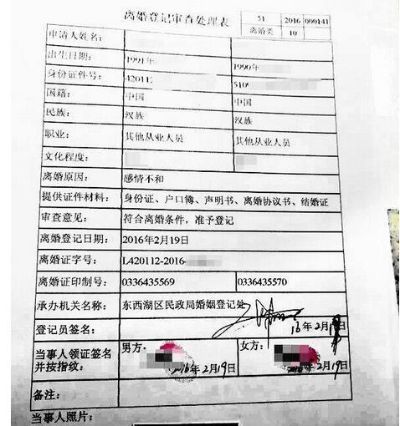 离婚登记审查处理表
51 2016 000141
离婚类 10
申请人姓名：
出生日期： 1991年 1990年
身份证件号： 420112 510
国籍： 中国 中国
民族： 汉族 汉族
职业： 其他从业人员 其他从业人员
文化程度：
离婚原因： 感情不和
提供证件材料： 身份证、户口簿、声明书、离婚协议书、结婚证
审查意见： 符合离婚条件，准予登记
离婚登记日期： 2016年2月19日
离婚证字号： L420112-2016-
离婚证印制号： 0336435569 0336435570
承办机关名称： 东西湖区民政局婚姻登记处
登记员签名： 16年2月19日
当事人领证签名并按指纹： 男方： 16年2月19日 女方： 16年2月19日
备注：
当事人照片：